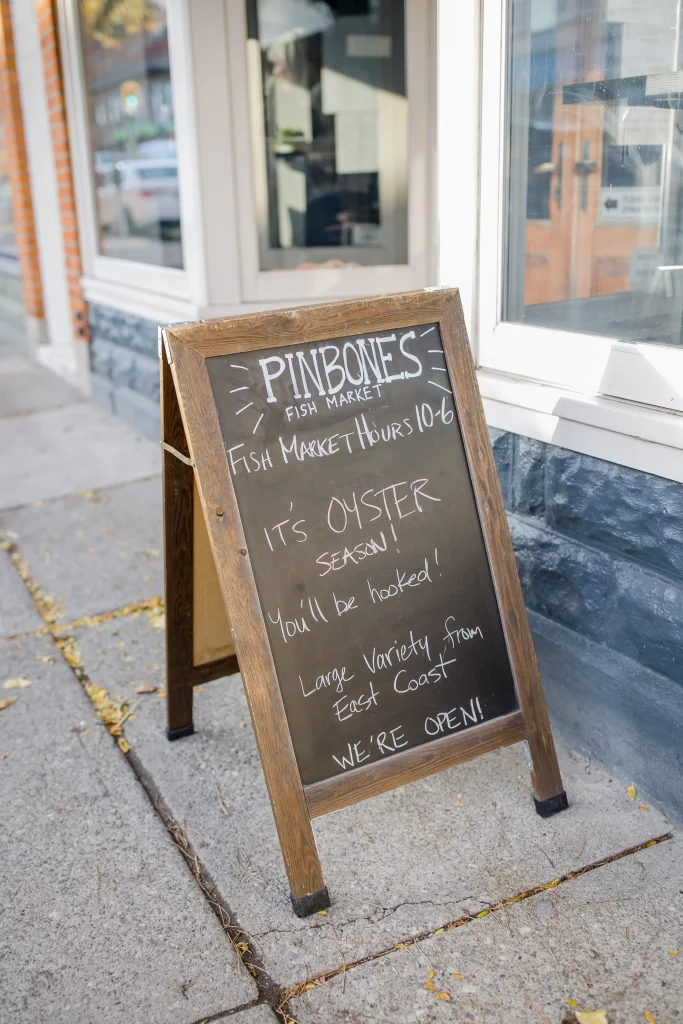 PINBONES
FISH MARKET
FISH MARKET HOURS 10-6
IT'S OYSTER
SEASON!
You'll be hooked!
Large Variety from
East Coast
WE'RE OPEN!